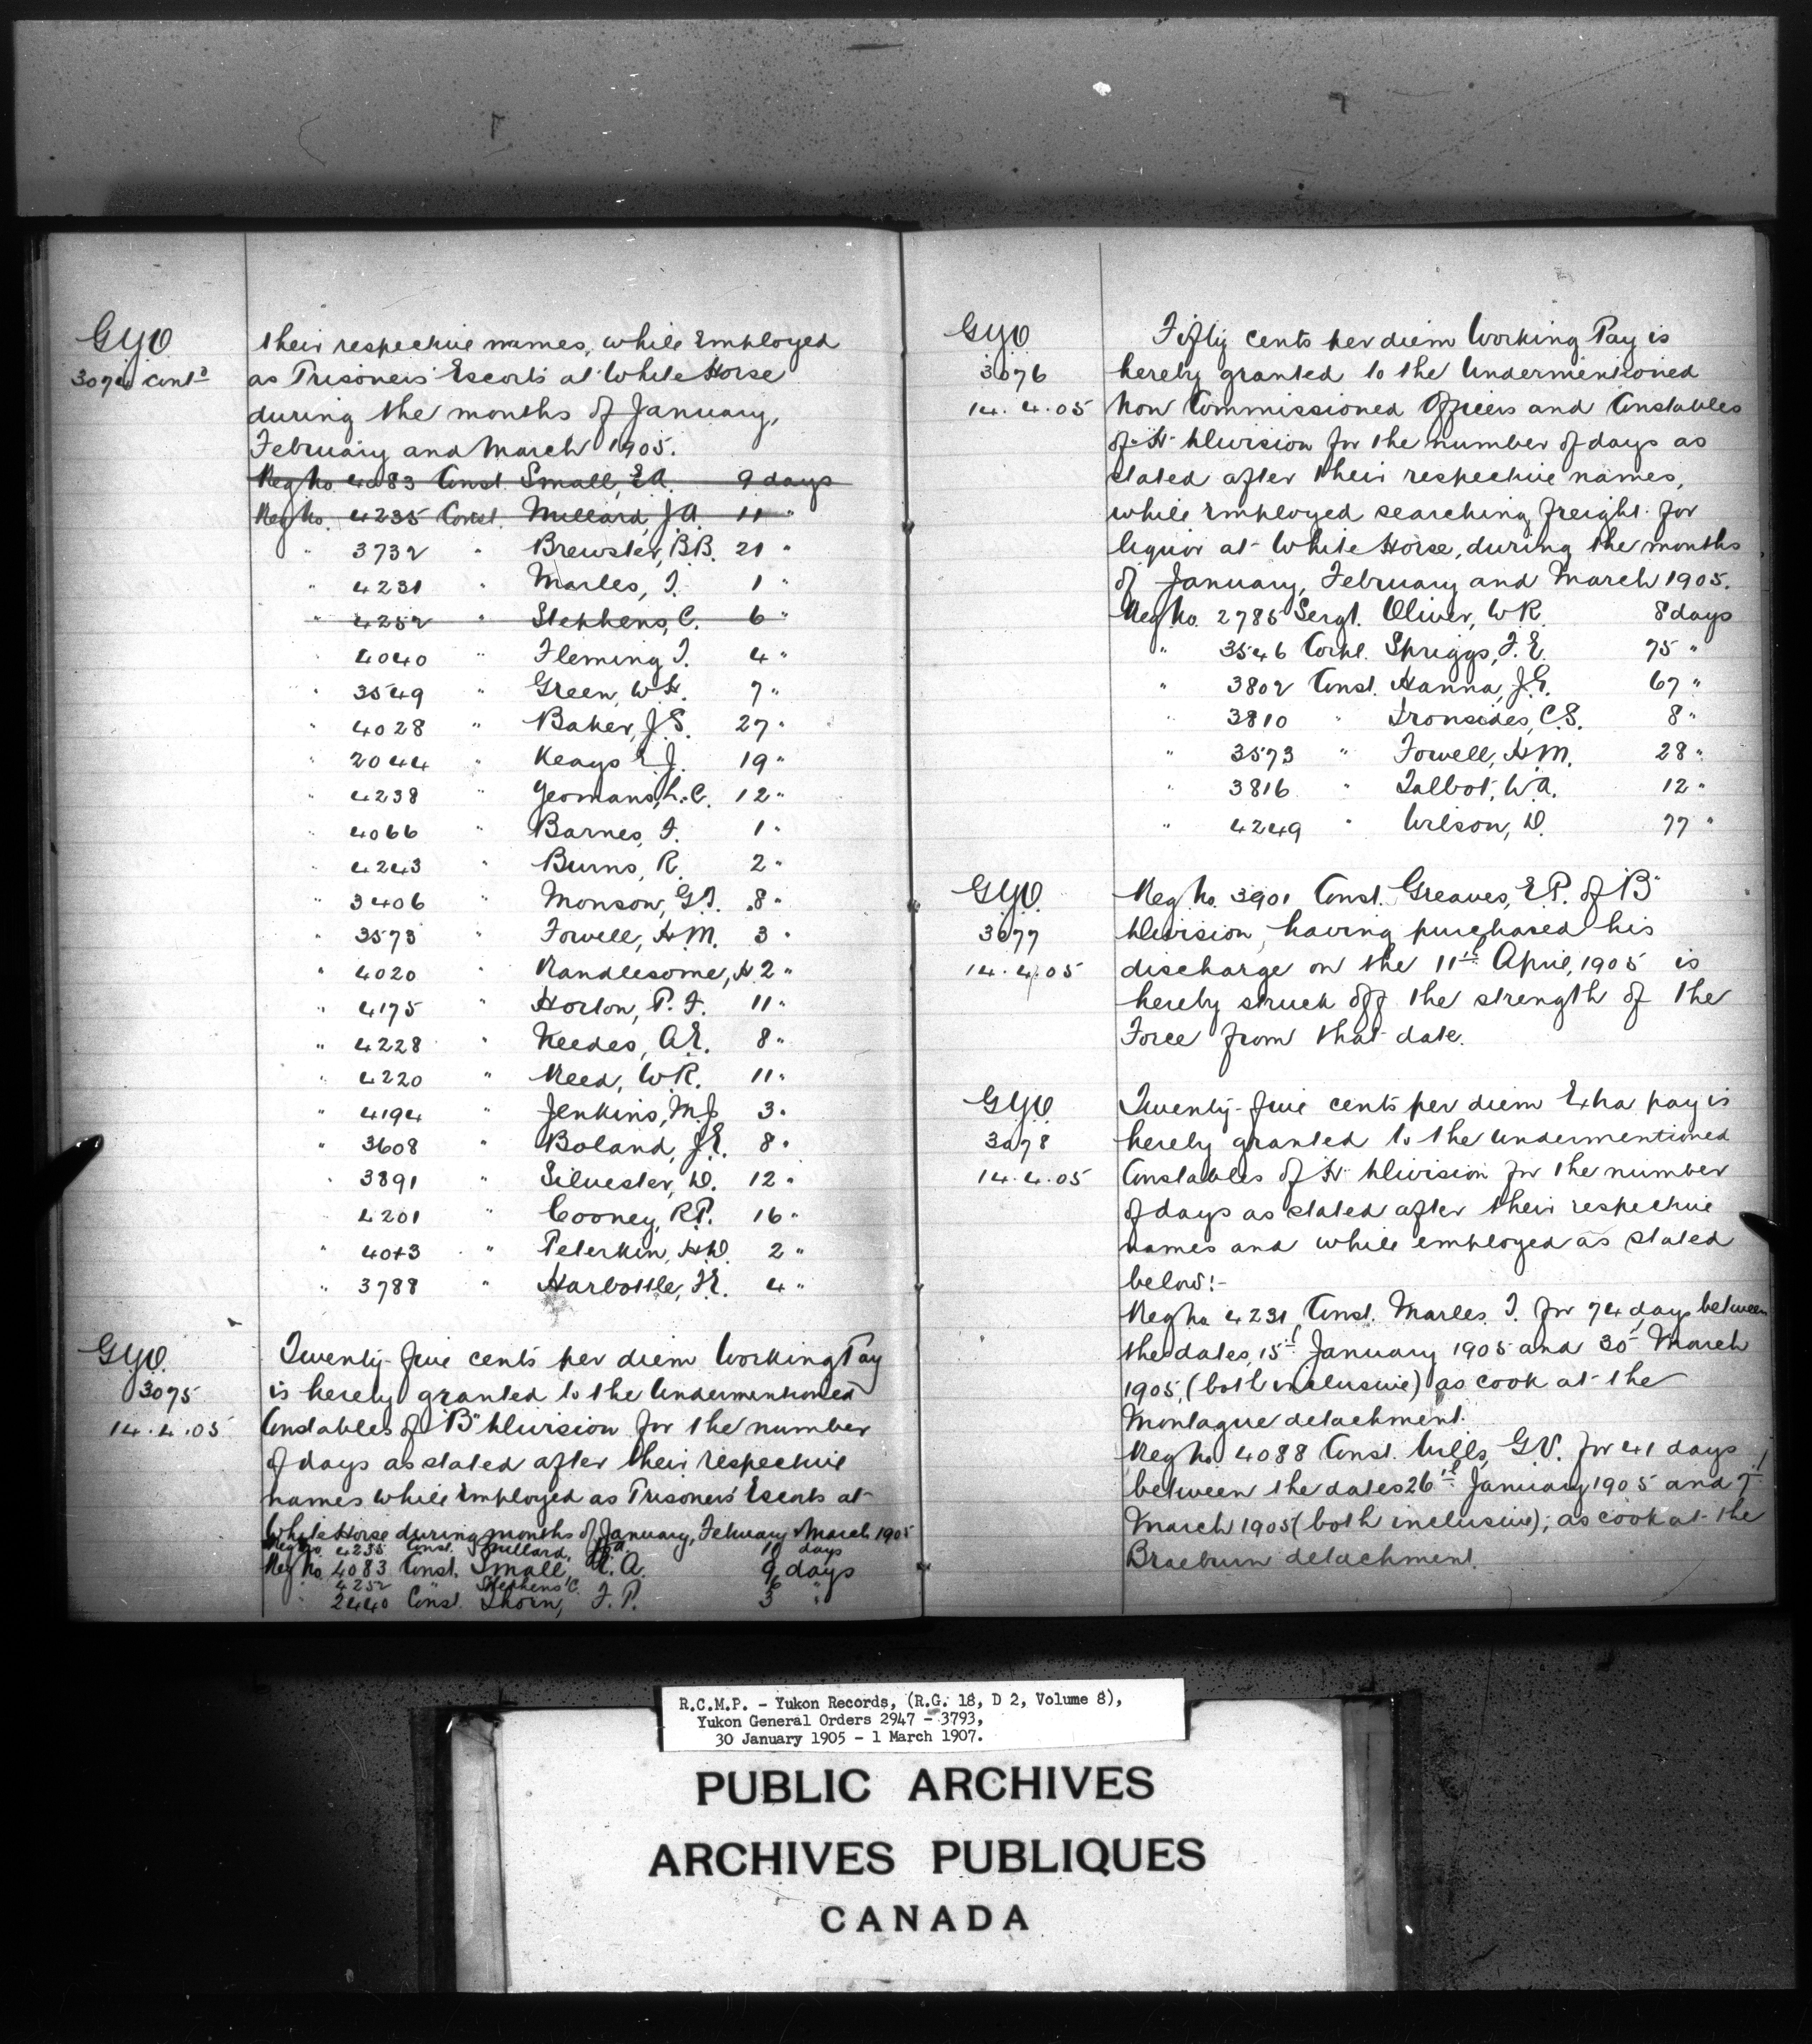 GYO
3074 contd
their respective names, while Employed
as Prisoners' Escorts at White Horse
during the months of January,
February and March 1905.
Reg No. 4083 Const. Small, E.A. 9 days
Reg No. 4235 Const. Millard, J.A. 11 "
" 3732 " Brewster, B.B. 21 "
" 4231 " Marles, T. 1 "
" 4252 " Stephens, C. 6 "
" 4040 " Fleming T. 4 "
" 3549 " Green, W.H. 7 "
" 4028 " Baker, J.S. 27 "
" 2044 " Keays E.J. 19 "
" 4238 " Yeomans, L.C. 12 "
" 4066 " Barnes, F. 1 "
" 4243 " Burns, R. 2 "
" 3406 " Monson, G.T. 8 "
" 3573 " Fowell, H.M. 3 "
" 4020 " Randlesome, H 2 "
" 4175 " Horton, P.F. 11 "
" 4228 " Needes, A.E. 8 "
" 4220 " Reed, W.R. 11 "
" 4194 " Jenkins, M.J. 3 "
" 3608 " Boland, J.E. 8 "
" 3891 " Silvester, D. 12 "
4201 " Cooney, R.P. 16 "
" 4043 " Peterkin, H.D. 2 "
" 3788 " Harbottle, F.E. 4 "
GYO.
3075
14.4.05
Twenty-five cents per diem Working Pay
is hereby granted to the Undermentioned
Constables of "B" Division for the number
of days as stated after their respective
names while Employed as Prisoners' Escorts at
White Horse during months of January, February & March 1905
Reg No. 4235 Const. Millard, J.A. 11 days
Reg No. 4083 Const. Small, E.A. 9 days
" 4252 " Stephens C. 6 "
" 2440 Const. Thorn, F.P. 3 "
GYO
3076
14.4.05
Fifty cents per diem Working Pay is
hereby granted to the Undermentioned
Non Commissioned Officers and Constables
of "H" Division for the number of days as
stated after their respective names,
while Employed searching freight for
liquor at White Horse, during the months
of January, February and March 1905.
Reg No. 2785 Sergt. Oliver, W.R. 8 days
" 3546 Corpl. Spriggs, F.E. 75 "
" 3802 Const. Hanna, J.G. 67 "
" 3810 " Ironsides, C.S. 8 "
" 3573 " Fowell, H.M. 28 "
" 3816 " Talbot, W.A. 12 "
" 4249 " Wilson, D. 77 "
GYO.
3077
14.4.05
Reg No. 3901 Const. Greaves, E.P. of "B"
Division, having purchased his
discharge on the 11th April, 1905 is
hereby struck off the strength of the
Force from that date.
GYO
3078
14.4.05
Twenty-five cents per diem Extra pay is
hereby granted to the undermentioned
Constables of "H" Division for the number
of days as stated after their respective
names and while employed as stated
below:-
Reg No 4231 Const. Marles. T. for 74 days between
the dates, 15th January 1905 and 30th March
1905, (both inclusive) as cook at the
Montague detachment.
Reg No 4088 Const. Mills, G.V. for 41 days
between the dates 26th January 1905 and 7th
March 1905 (both inclusive); as cook at the
Braeburn detachment.
R.C.M.P. - Yukon Records, (R.G. 18, D 2, Volume 8),
Yukon General Orders 2947 - 3793,
30 January 1905 - 1 March 1907.
PUBLIC ARCHIVES
ARCHIVES PUBLIQUES
CANADA